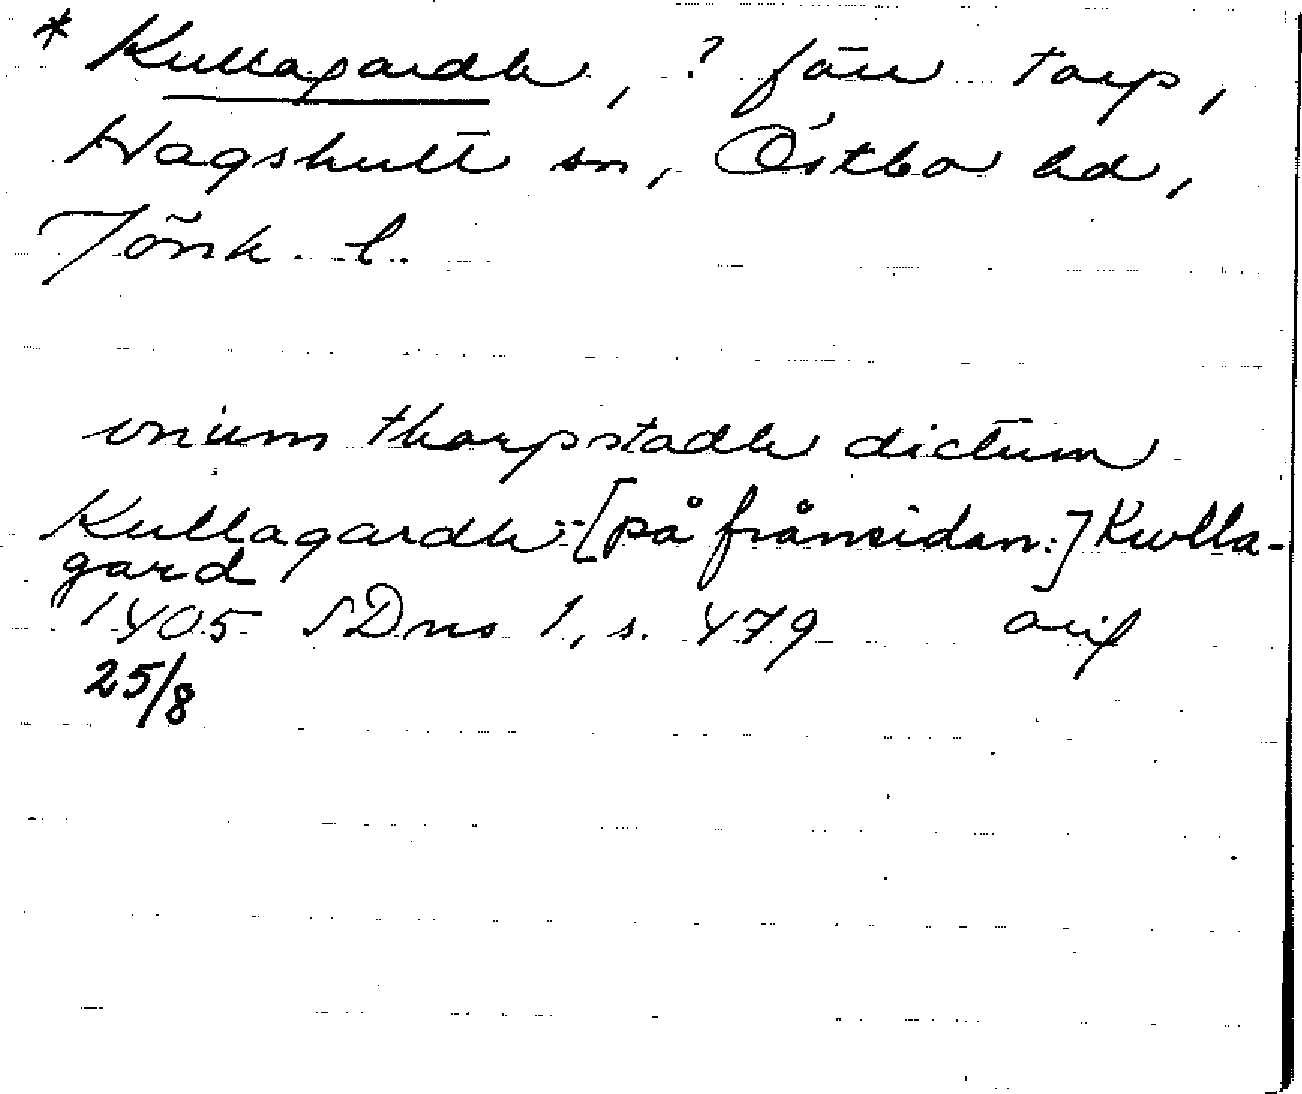 * Kullagardh, ? före torp,
Hagshult sn, Östbo hd,
Jönk. l.
vnum thorpstadh dictum
Kullagardh [på frånsidan:] Kwlla-
gard
1405 SDns 1, s. 479 orig
25/8